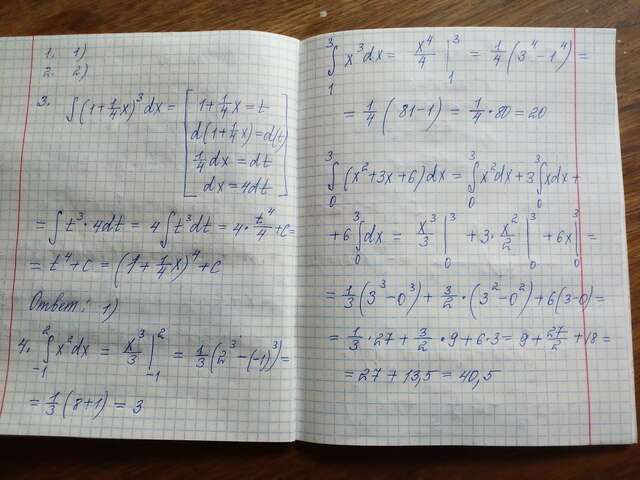 1. 1)
2. 2)
3. ∫(1+1/4x)³dx = [1+1/4x=t
d(1+1/4x)=d(t)
1/4dx=dt
dx=4dt]
=∫t³·4dt= 4∫t³dt=4·t⁴/4+c=
= t⁴+c = (1+1/4x)⁴+c
Ответ: 1)
4. ∫₋₁² x²dx = x³/3 |₋₁² = 1/3(2³-(-1)³)=
= 1/3(8+1) = 3
∫₁³ x³dx = x⁴/4 |₁³ = 1/4(3⁴-1⁴)=
= 1/4(81-1) = 1/4·80=20
∫₀³(x²+3x+6)dx=∫₀³x²dx+3∫₀³xdx+
+6∫₀³dx = x³/3 |₀³ +3·x²/2 |₀³ +6x|₀³=
=1/3(3³-0³)+3/2·(3²-0²)+6(3-0)=
=1/3·27+3/2·9+6·3=9+27/2+18=
=27+13,5=40,5